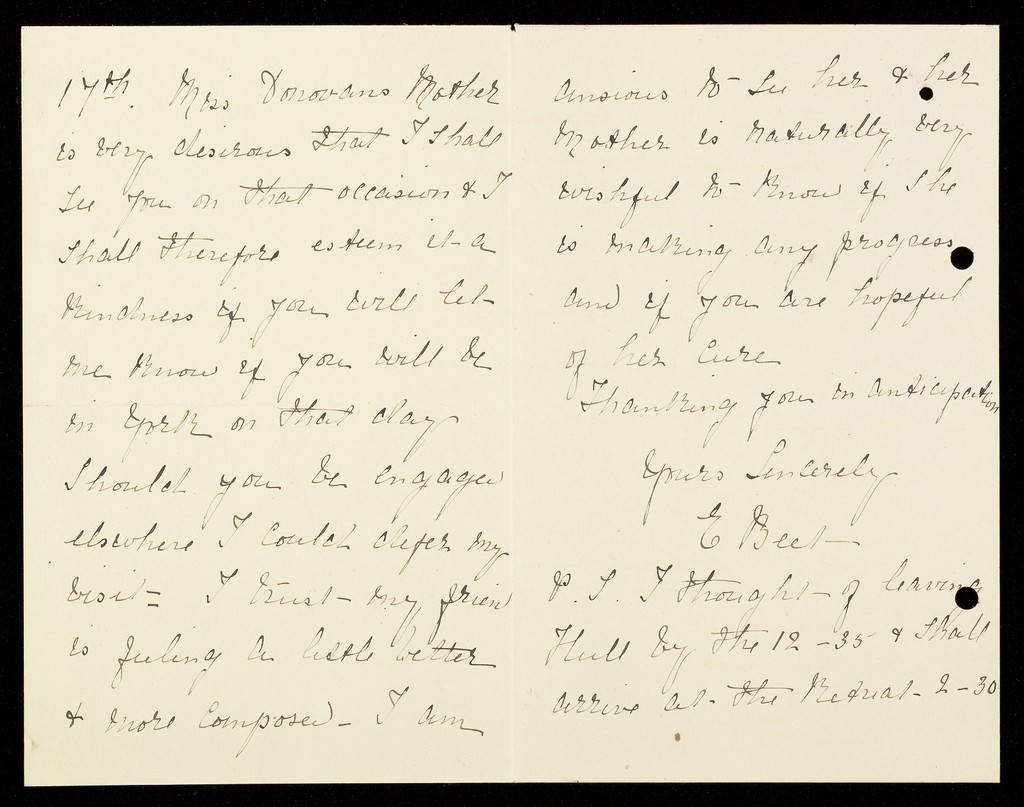 17th. Miss Donovans Mother
is very desirous that I shall
see you on that occasion & I
shall therefore esteem it a
kindness if you will let
me know if you will be
in York on that day
Should you be engaged
elsewhere I could defer my
visit = I trust my friend
is feeling a little better
& more composed - I am
anxious to see her & her
Mother is naturally very
wishful to know if she
is making any progress
and if you are hopeful
of her cure
Thanking you in anticipation
Yours Sincerely
E Beet
P.S. I thought of leaving
Hull by the 12-35 & shall
arrive at the Retreat 2-30